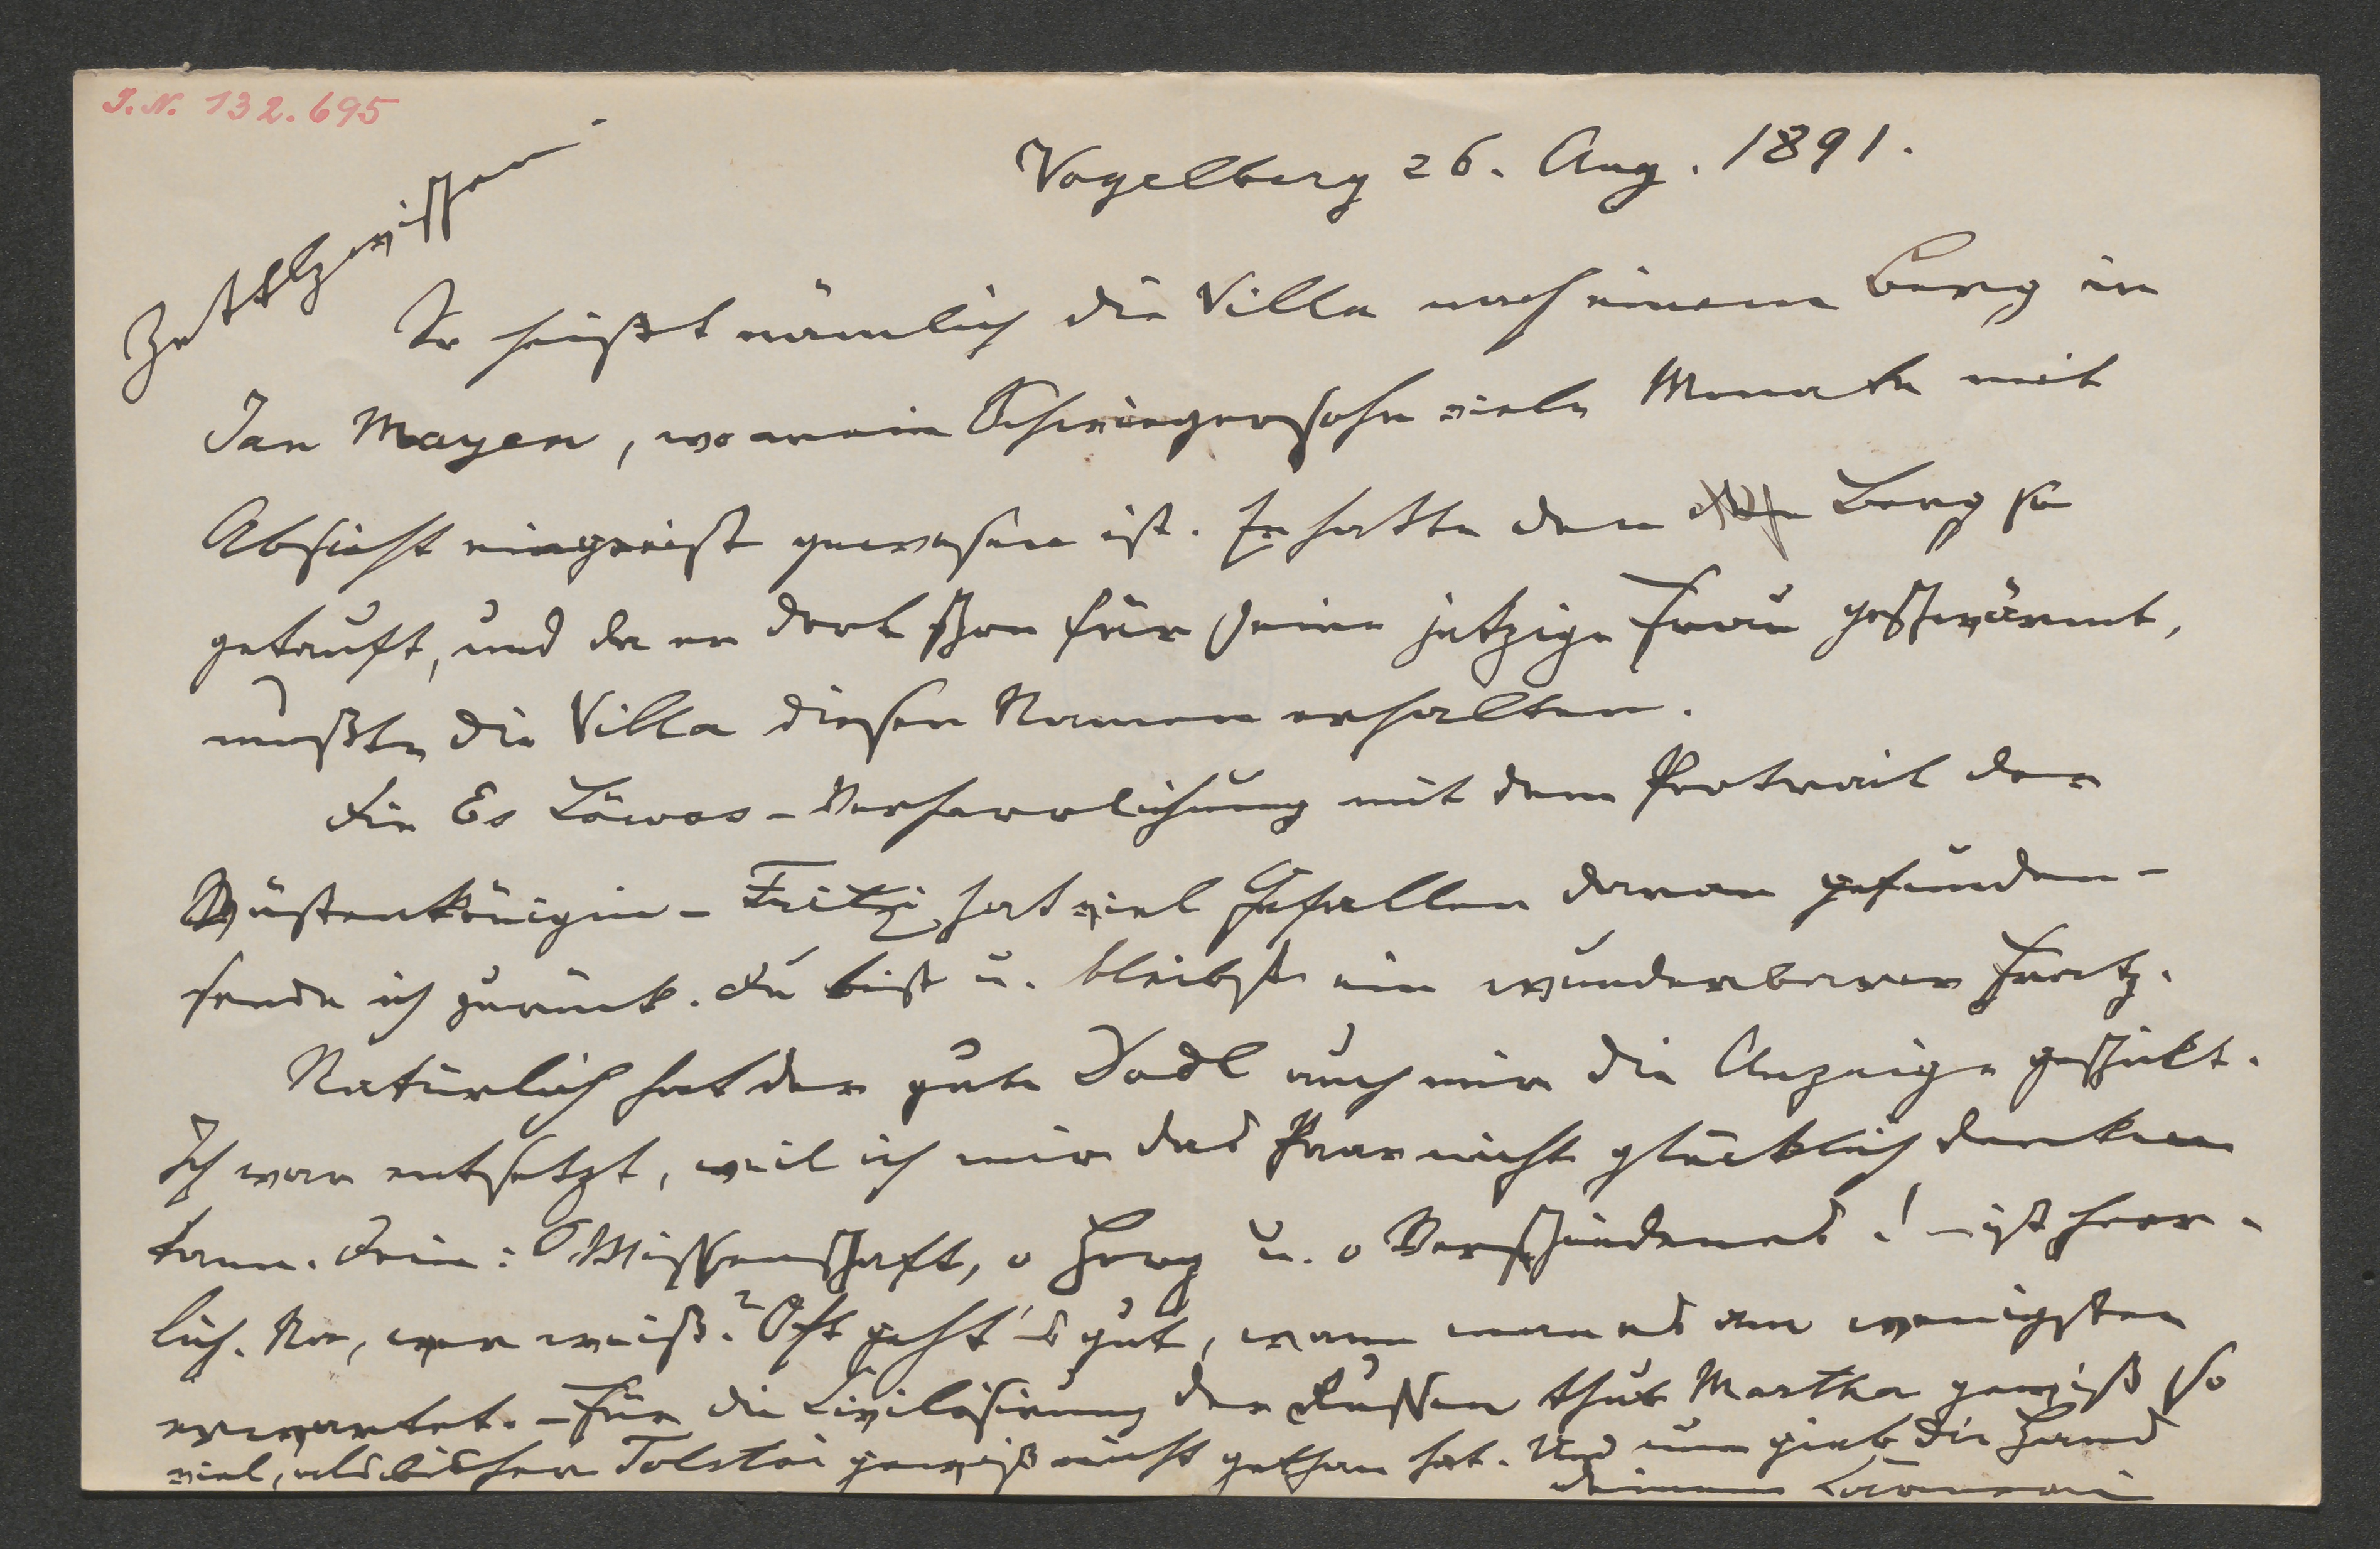 J.N. 132.695
Vogelberg 26. Aug. 1891.
So heißt nämlich die Villa nach einem Berg in
Jan Mayen, wo mein Schwiegersohn viele Monate mit
Absicht eingeeist gewesen ist. Er hatte den Berg so
getauft, und da er dort schon für seine jetzige Frau geschwärmt,
mußte die Villa diesen Namen erhalten.
Die Es Löwos-Verherrlichung mit dem Portrait der
Wüstenkönigin - Fritzi hat viel Gefallen daran gefunden -
sende ich zurück. Du bist u. bleibst ein wunderbarer Fratz.
Natürlich hat der gute Dodl auch mir die Anzeige geschickt.
Ich war entsetzt, weil ich mir das Paar nicht glücklich denken
kann. Dein: O Wissenschaft, o Herz u. o Verschiedenes! - ist herr-
lich. Na, wer weiß? Oft geht's gut, wann man es am wenigsten
erwartet. - Für die Civilisirung der Russen thut Martha gewiß so
viel, als bisher Tolstoi gewiß nicht gethan hat. Und nun gieb die Hand
Deinem Carneri